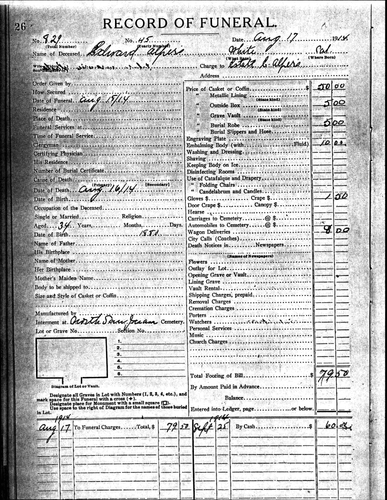 26 RECORD OF FUNERAL.
No. 829 No. 45 Date Aug 17 1914
(Total Number) (Yearly Number)
Name of Deceased Edward Alpers White Cal
(What Race) (Where Born)
Charge to Estate E. Alpers
Address
Order Given by
How Secured
Date of Funeral Aug 17/14
Residence
Place of Death
Funeral Services at
Time of Funeral Service
Clergyman
Certifying Physician
His Residence
Number of Burial Certificate
Cause of Death
(Primary) (Secondary)
Date of Death Aug 16/14
Occupation of the Deceased
Single or Married Religion
Aged 34 Years Months Days
Date of Birth 1880
Name of Father
His Birthplace
Name of Mother
Her Birthplace
Mother's Maiden Name
Body to be shipped to
Size and Style of Casket or Coffin
Manufactured by
Interment at North San Juan Cemetery
Lot or Grave No. Section No.
1
2
3
4
5
6
7
8
Diagram of Lot or Vault.
Designate all Graves in Lot with Numbers (1, 2, 3, 4, etc.), and
mark space for this Funeral with a cross (+).
Designate place for Monument with a small square (□).
Use space to the right of Diagram for the names of those buried
in Lot.
Price of Casket or Coffin 50 00
" Metallic Lining
(State Kind)
" Outside Box 5 00
" Grave Vault
(State Kind)
" Burial Robe 5 00
" Burial Slippers and Hose
Engraving Plate
Embalming Body (with Fluid) 10 00
Washing and Dressing
Shaving
Keeping Body on Ice
Disinfecting Rooms
Use of Catafalque and Drapery
" Folding Chairs
" Candelabrum and Candles
Gloves $ Crape $ 1 50
Door Crape $ Canopy $
Hearse
Carriages to Cemetery @ $
Automobiles to Cemetery @ $
Wagon Deliveries 8 00
City Calls (Coaches)
Death Notices in Newspapers
(Names of Newspapers)
Flowers
Outlay for Lot
Opening Grave or Vault
Lining Grave
Vault Rental
Shipping Charges, prepaid
Removal Charges
Cremation Charges
Porters
Watchers
Personal Services
Music
Church Charges
Total Footing of Bill $ 79 50
By Amount Paid in Advance
Balance
Entered into Ledger, page or below.
1914 1914
Aug 17 To Funeral Charges Total $ 79 50 Sept 25 By Cash $ 60